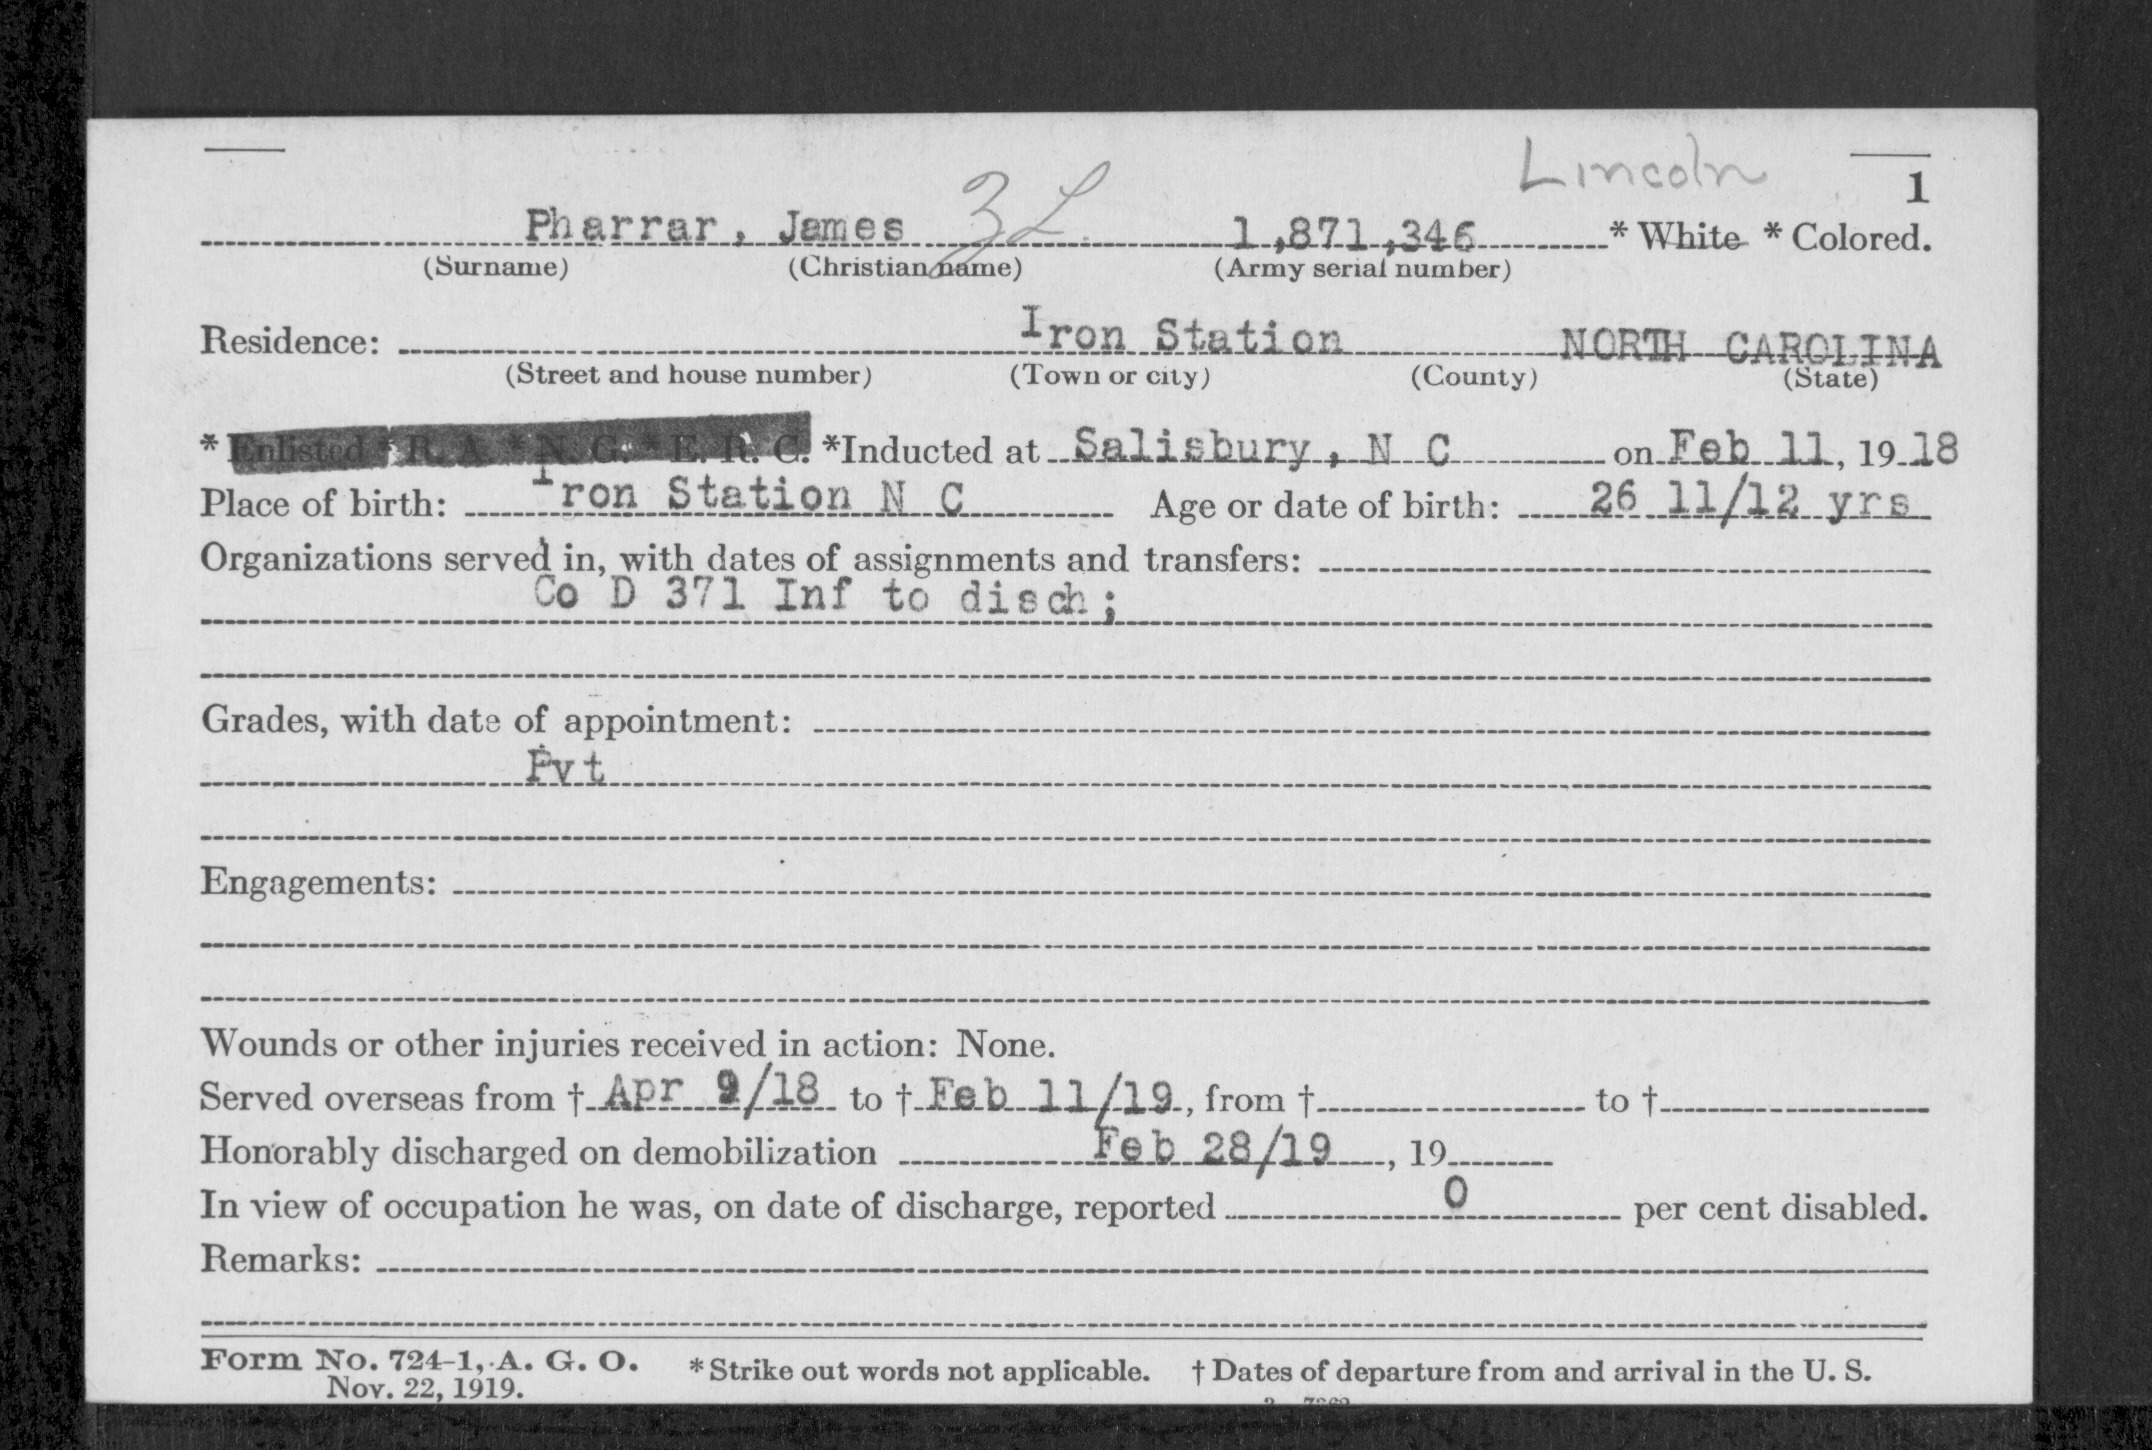 Lincoln
1
Pharrar, James 3L 1,871,346 * White * Colored.
(Surname) (Christian name) (Army serial number)
Residence: Iron Station NORTH CAROLINA
(Street and house number) (Town or city) (County) (State)
* Enlisted * R. A. * N. G. * E. R. C. *Inducted at Salisbury, N C on Feb 11, 19 18
Place of birth: Iron Station N C Age or date of birth: 26 11/12 yrs
Organizations served in, with dates of assignments and transfers:
Co D 371 Inf to disch;
Grades, with date of appointment:
Pvt
Engagements:
Wounds or other injuries received in action: None.
Served overseas from † Apr 9/18 to † Feb 11/19, from † to †
Honorably discharged on demobilization Feb 28/19, 19
In view of occupation he was, on date of discharge, reported 0 per cent disabled.
Remarks:
Form No. 724-1, A. G. O. * Strike out words not applicable. † Dates of departure from and arrival in the U. S.
Nov. 22, 1919.